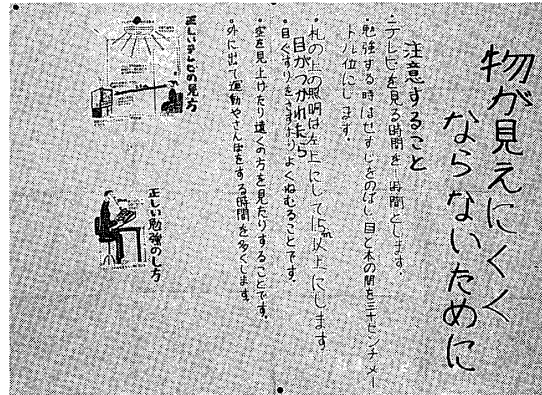 物が見えにくく
ならないために
注意すること
・テレビを見る時間を一時間とします。
・勉強する時はせすじをのばし目と本の間を三十センチメー
トル位にします。
・札の上の照明は左上にして15W以上にします
目がつかれたら
・目ぐすりをさすたりよくねむることです。
・空を見上げたり遠くの方を見たりすることです。
・外に出て運動やさんぽをする時間を多くします。
正しいテレビの見方
正しい勉強のし方